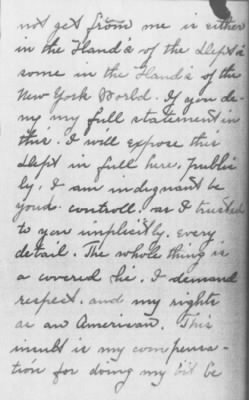 not get from me is either
in the Hand's of the Dept's
some in the Hand's of the
New York World. If you de-
ny my full statement in
this. I will expose this
Dept in full here, public
ly. I am indignant be
yond controll. as I trusted
to you implicitly. every
detail. The whole thing is
a covered lie. I demand
respect. and my rights
as an American. This
insult is my compensa-
tion for doing my bit be